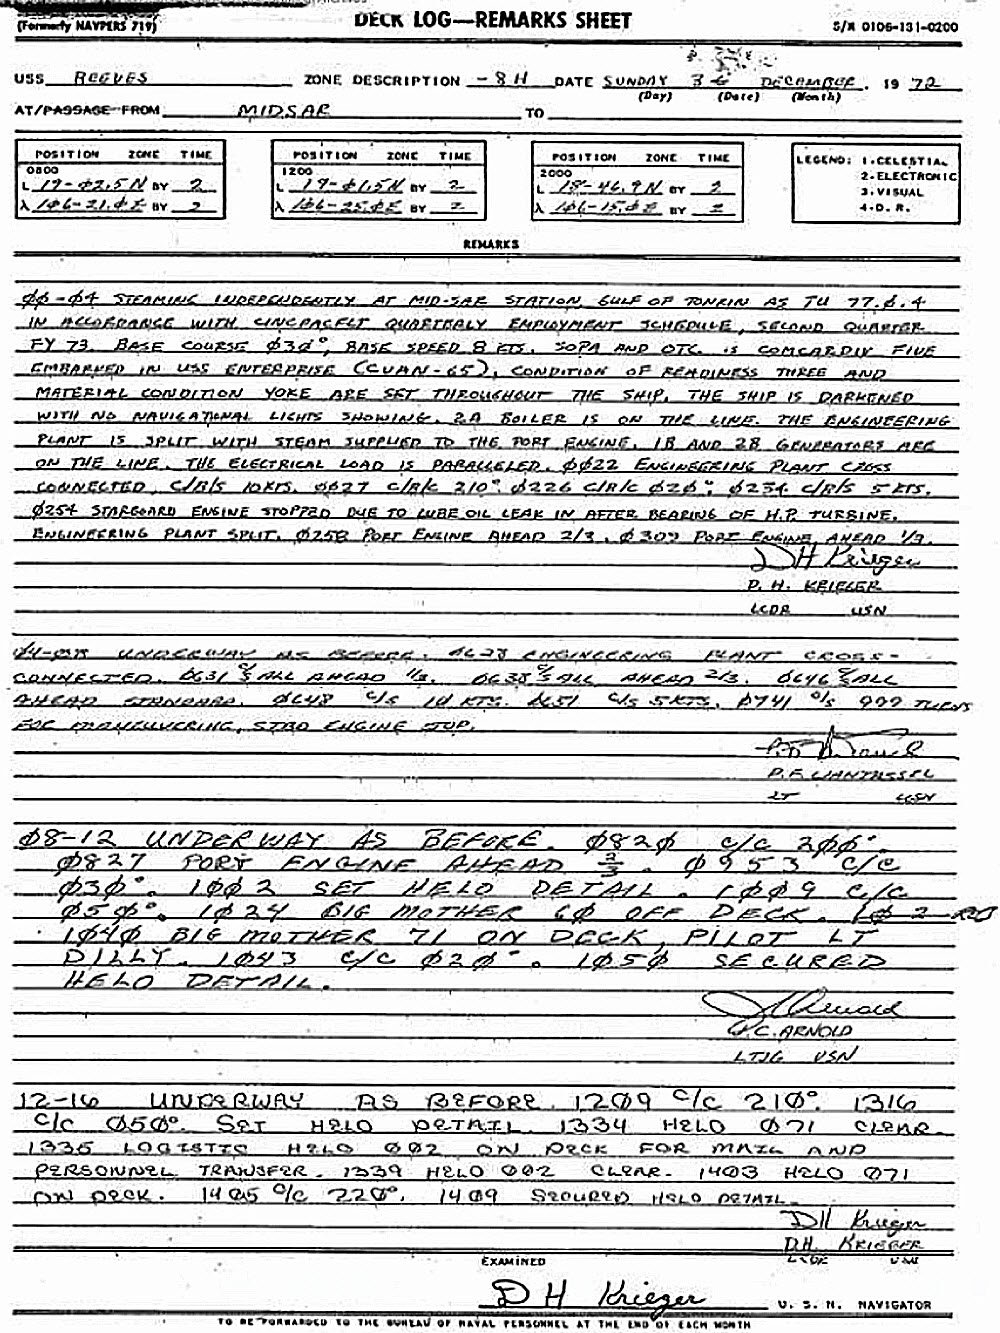 (Formerly NAVPERS 719)
DECK LOG—REMARKS SHEET
S/N 0106-131-0200
USS REEVES ZONE DESCRIPTION -8H DATE SUNDAY 3 DECEMBER 19 72
(Day) (Date) (Month)
AT/PASSAGE FROM MIDSAR TO
POSITION ZONE TIME
0800
L 19-02.5N BY 2
λ 106-21.0E BY 2
POSITION ZONE TIME
1200
L 19-01.5N BY 2
λ 106-25.0E BY 2
POSITION ZONE TIME
2000
L 18-46.9N BY 2
λ 106-15.0E BY 2
LEGEND: 1-CELESTIAL
2-ELECTRONIC
3-VISUAL
4-D.R.
REMARKS
ØØ-Ø4 STEAMING INDEPENDENTLY AT MID-SAR STATION, GULF OF TONKIN AS TU 77.Ø.4
IN ACCORDANCE WITH CINCPACFLT QUARTERLY EMPLOYMENT SCHEDULE, SECOND QUARTER
FY 73. BASE COURSE Ø3Ø°, BASE SPEED 8 KTS. SOPA AND OTC IS COMCARDIV FIVE
EMBARKED IN USS ENTERPRISE (CVAN-65), CONDITION OF READINESS THREE AND
MATERIAL CONDITION YOKE ARE SET THROUGHOUT THE SHIP. THE SHIP IS DARKENED
WITH NO NAVIGATIONAL LIGHTS SHOWING. 2A BOILER IS ON THE LINE. THE ENGINEERING
PLANT IS SPLIT WITH STEAM SUPPLIED TO THE PORT ENGINE. 1B AND 2B GENERATORS ARE
ON THE LINE. THE ELECTRICAL LOAD IS PARALLELED. ØØ22 ENGINEERING PLANT CROSS
CONNECTED, C/B/S 10KTS. ØØ27 C/B/C 210°. Ø226 C/B/C Ø2Ø°. Ø234 C/B/S 5 KTS.
Ø254 STARBOARD ENGINE STOPPED DUE TO LUBE OIL LEAK IN AFTER BEARING OF H.P. TURBINE.
ENGINEERING PLANT SPLIT. Ø258 PORT ENGINE AHEAD 2/3. Ø309 PORT ENGINE AHEAD 1/3.
D H Krieger
D. H. KRIEGER
LCDR USN
Ø4-Ø8 UNDERWAY AS BEFORE. Ø628 ENGINEERING PLANT CROSS-
CONNECTED. Ø631 C/S ALL AHEAD 1/3. Ø638 C/S ALL AHEAD 2/3. Ø646 C/S ALL
AHEAD STANDARD. Ø648 C/S 10 KTS. Ø651 C/S 5 KTS. Ø741 C/S 999 TURNS
FOR MANEUVERING, STBD ENGINE STOP.
P.F. VANTASSEL
LT USN
Ø8-12 UNDERWAY AS BEFORE. Ø82Ø C/C 2ØØ°.
Ø827 PORT ENGINE AHEAD 2/3. Ø953 C/C
Ø3Ø°. 1ØØ2 SET HELO DETAIL. 1ØØ9 C/C
Ø5Ø°. 1Ø24 BIG MOTHER 6Ø OFF DECK. 1Ø2
1Ø4Ø BIG MOTHER 71 ON DECK, PILOT LT
DILLY. 1Ø43 C/C Ø2Ø°. 1Ø5Ø SECURED
HELO DETAIL.
Arnold
ARNOLD
LTJG USN
12-16 UNDERWAY AS BEFORE. 12Ø9 C/C 21Ø°. 1316
C/C Ø5Ø°. SET HELO DETAIL. 1334 HELO Ø71 CLEAR.
1335 LOGISTIC HELO ØØ2 ON DECK FOR MAIL AND
PERSONNEL TRANSFER. 1339 HELO ØØ2 CLEAR. 14Ø3 HELO Ø71
ON DECK. 14Ø5 C/C 22Ø°. 14Ø9 SECURED HELO DETAIL.
DH Krieger
D.H. KRIEGER
LCDR USN
EXAMINED
D H Krieger U. S. N. NAVIGATOR
TO BE FORWARDED TO THE BUREAU OF NAVAL PERSONNEL AT THE END OF EACH MONTH